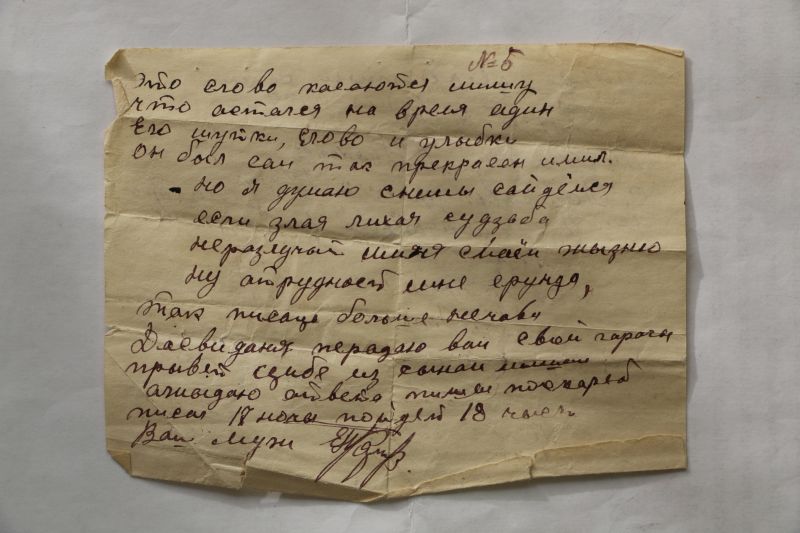 №5
это слово касаются мишу
что астался на время адин
Его шутки, слово и улыбки
он был сам так прекрасен и мил.
но я думаю снимы сайдёмся
если злая лихая судзьба
неразлучат миня смаей жызню
ну атрудност мне ерунда,
так писаць больше нечава
Дасвиданя перадаю вам свой гарачы
привет с
ажыдаю ответа пиши поскареб
писал 17 ночы пойдет 18
Ваш муж